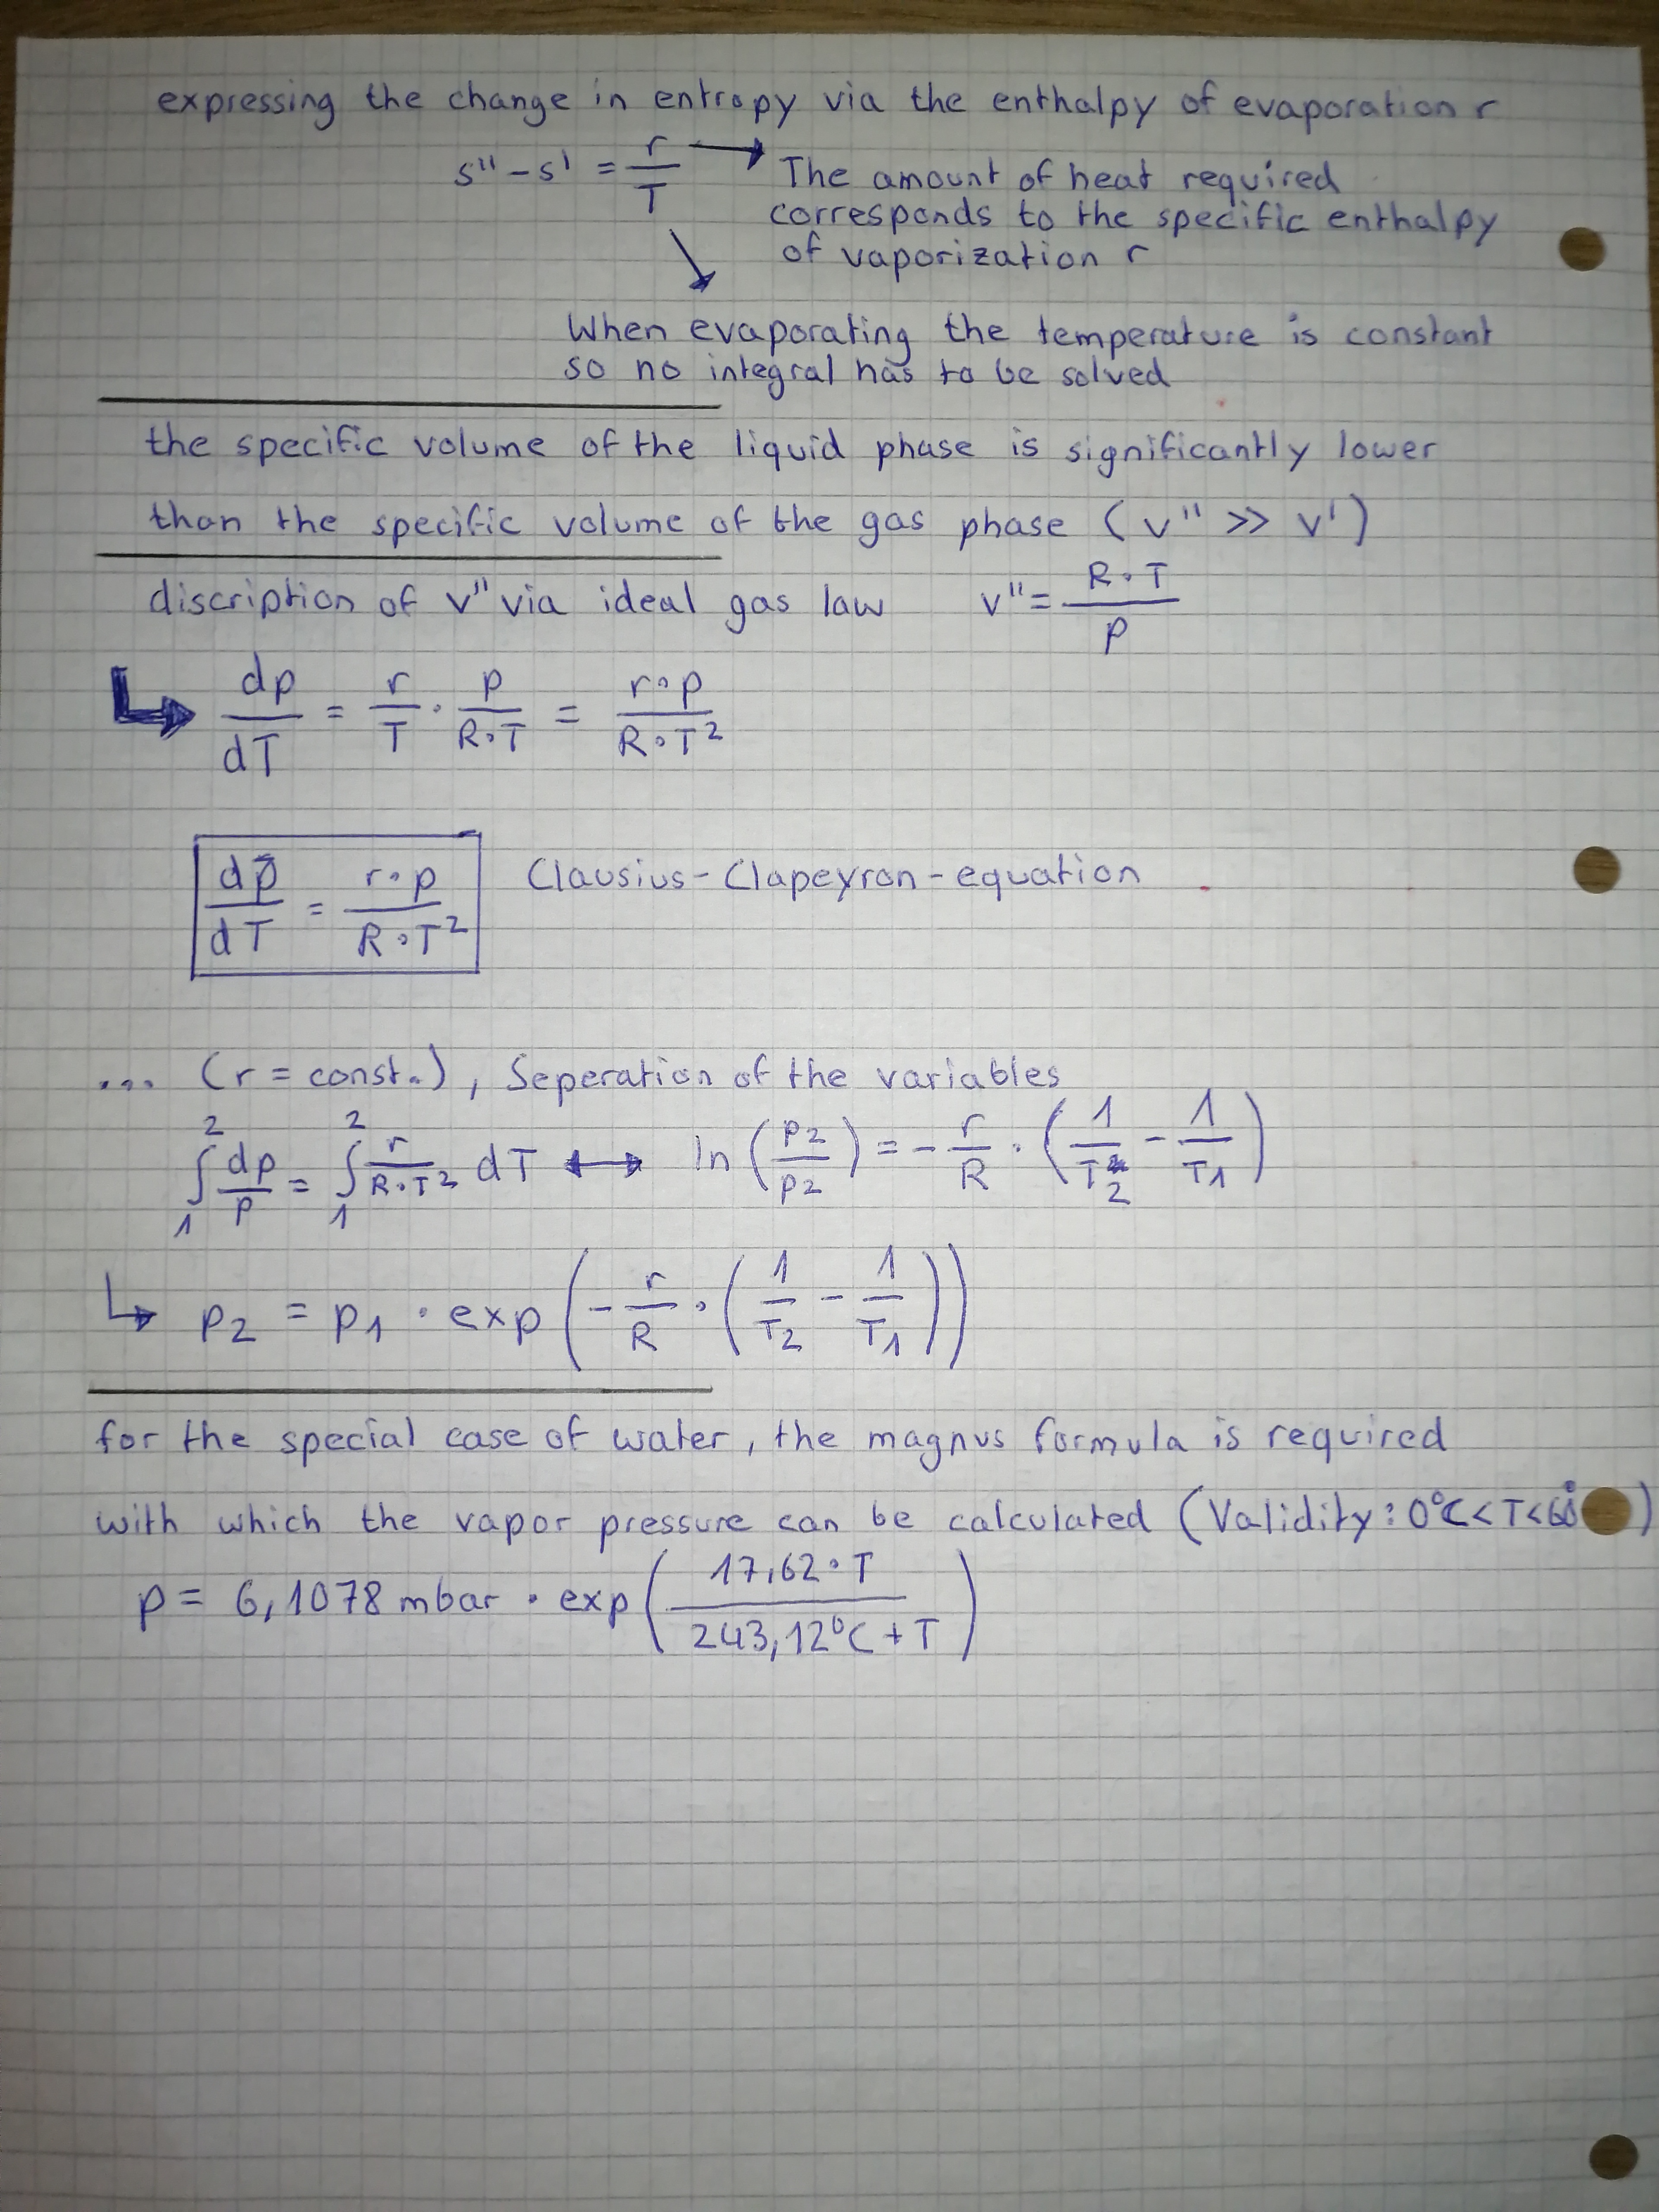 expressing the change in entropy via the enthalpy of evaporation r
s'' - s' = r/T → The amount of heat required
corresponds to the specific enthalpy
of vaporization r
When evaporating the temperature is constant
so no integral has to be solved
the specific volume of the liquid phase is significantly lower
than the specific volume of the gas phase (v'' >> v')
discription of v'' via ideal gas law v'' = R·T/p
↳ dp/dT = r/T · p/R·T = r·p/R·T²
dp/dT = r·p/R·T² Clausius-Clapeyron-equation
... (r = const.), Seperation of the variables
∫₁² dp/p = ∫₁² r/R·T² dT ↔ ln(p₂/p₂) = - r/R · (1/T₂ - 1/T₁)
↳ p₂ = p₁ · exp(- r/R · (1/T₂ - 1/T₁))
for the special case of water, the magnus formula is required
with which the vapor pressure can be calculated (Validity: 0°C < T < 60°)
p = 6,1078 mbar · exp(17,62·T/243,12°C + T)